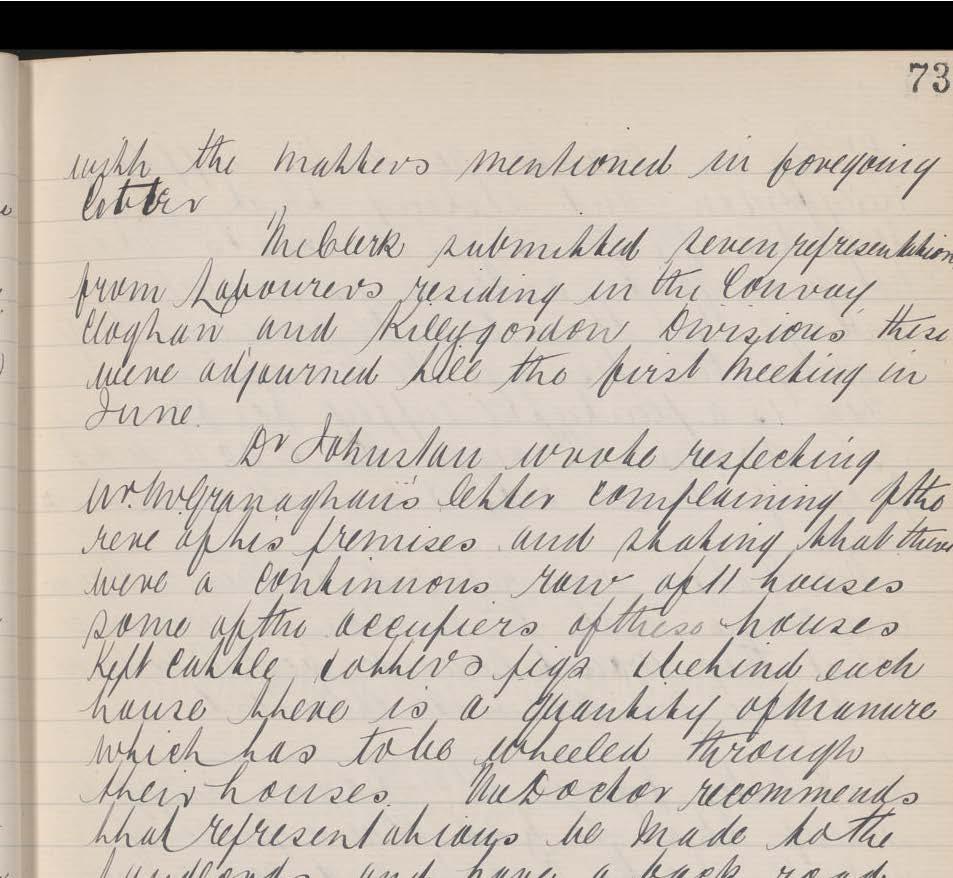 73
with the matters mentioned in foregoing
letter
The Clerk submitted seven representation
from Labourers residing in the Convoy
Cloghan and Killygordon Divisions these
were adjourned till the first Meeting in
June.
Dr Johnston wrote respecting
Wm. McGranaghan's letter complaining of the
rere of his premises and stating that there
were a continuous row of 11 houses
some of the occupiers of these houses
kept cattle others pigs & behind each
house there is a quantity of Manure
which has to be wheeled through
their houses. The Doctor recommends
that representations be made to the
Landlords and have a back road